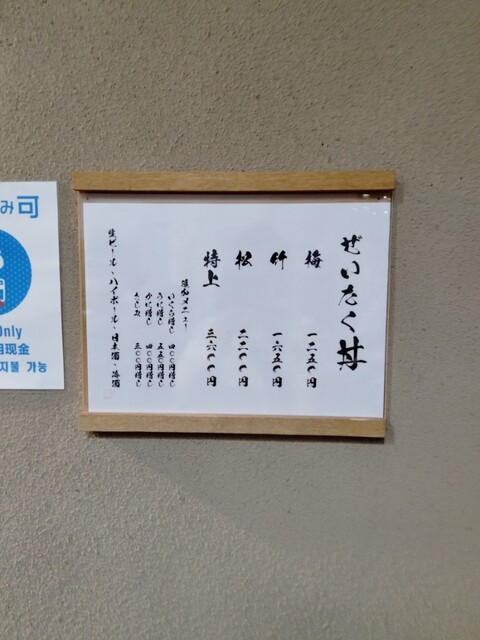 ぜいたく丼
梅 一二五〇円
竹 一六五〇円
松 二二〇〇円
特上 三六〇〇円
追加メニュー
いくら増し 四〇〇円増し
うに増し 五五〇円増し
かに増し 四〇〇円増し
さしみ 三〇〇円増し
生ビール、ハイボール、日本酒、冷酒
み可
Only
用現金
지불 가능